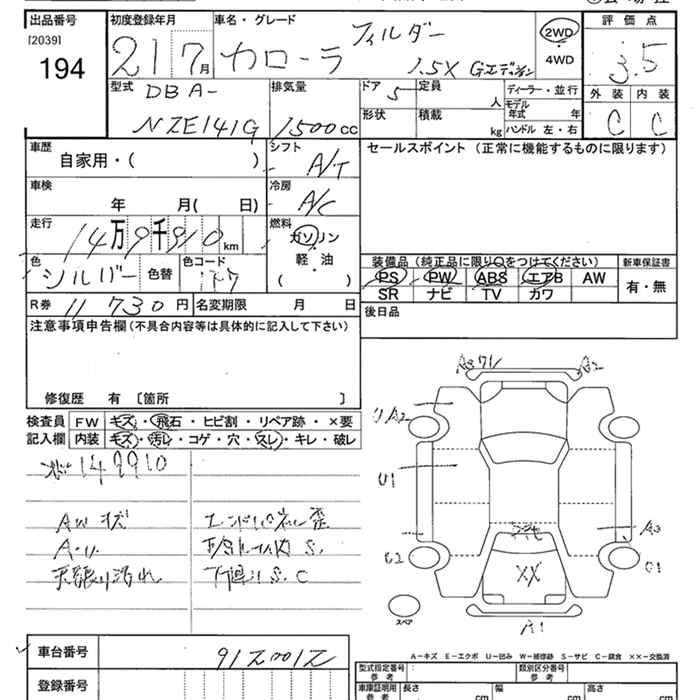 出品番号 初度登録年月 車名・グレード 評価点
[2039]
194 21 7月 カローラ フィルダー 1.5X Gエディション 2WD ・ 4WD 3.5
型式 排気量 ドア 定員 ディーラー・並行 外装 内装
DBA- 5 人 モデル年式 年 C C
NZE141G 1500cc 形状 積載 kg ハンドル 左・右
車歴 シフト セールスポイント(正常に機能するものに限ります)
自家用・( ) A/T
車検 冷房
年 月( 日) A/C
走行 燃料
14万9千910km ガソリン
色 色コード 軽・油 装備品(純正品に限り○をつけてください) 新車保証書
シルバー 色替 ( ) PS PW ABS エアB AW 有・無
SR ナビ TV カワ
R券 11730円 名変期限 月 日 後日品
注意事項申告欄(不具合内容等は具体的に記入して下さい)
修復歴 有 〔箇所 〕
検査員 FW キズ・飛石・ヒビ割・リペア跡・×要
記入欄 内装 キズ・汚レ・コゲ・穴・スレ・キレ・破レ
149910
AWキズ
天張り汚れ S.C
A2
UA2
U1
A3
C1
XX
A1
スペア
A-キズ E-エクボ U-凹み W-補修跡 S-サビ C-腐食 ××-交換済
車台番号
登録番号 型式指定番号 参考 類別区分番号 参考
車庫証明用 参考 長さ cm 幅 cm 高さ cm